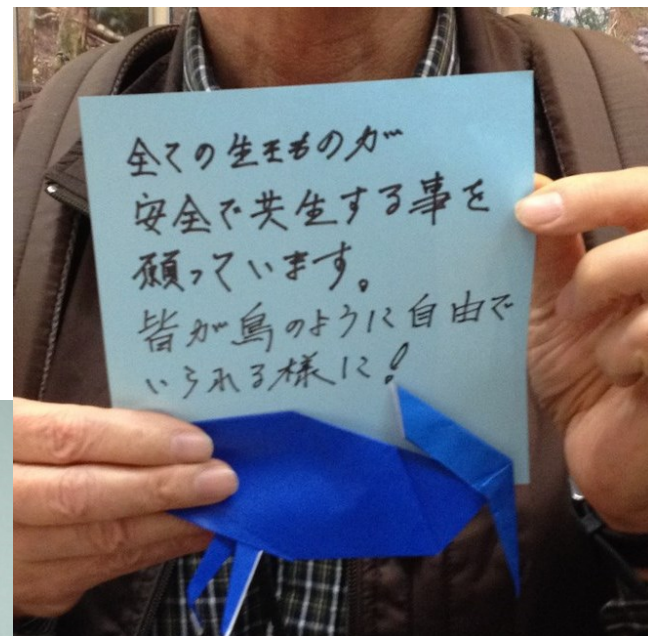 全ての生きものが
安全で共生する事を
願っています。
皆が鳥のように自由で
いられる様に!